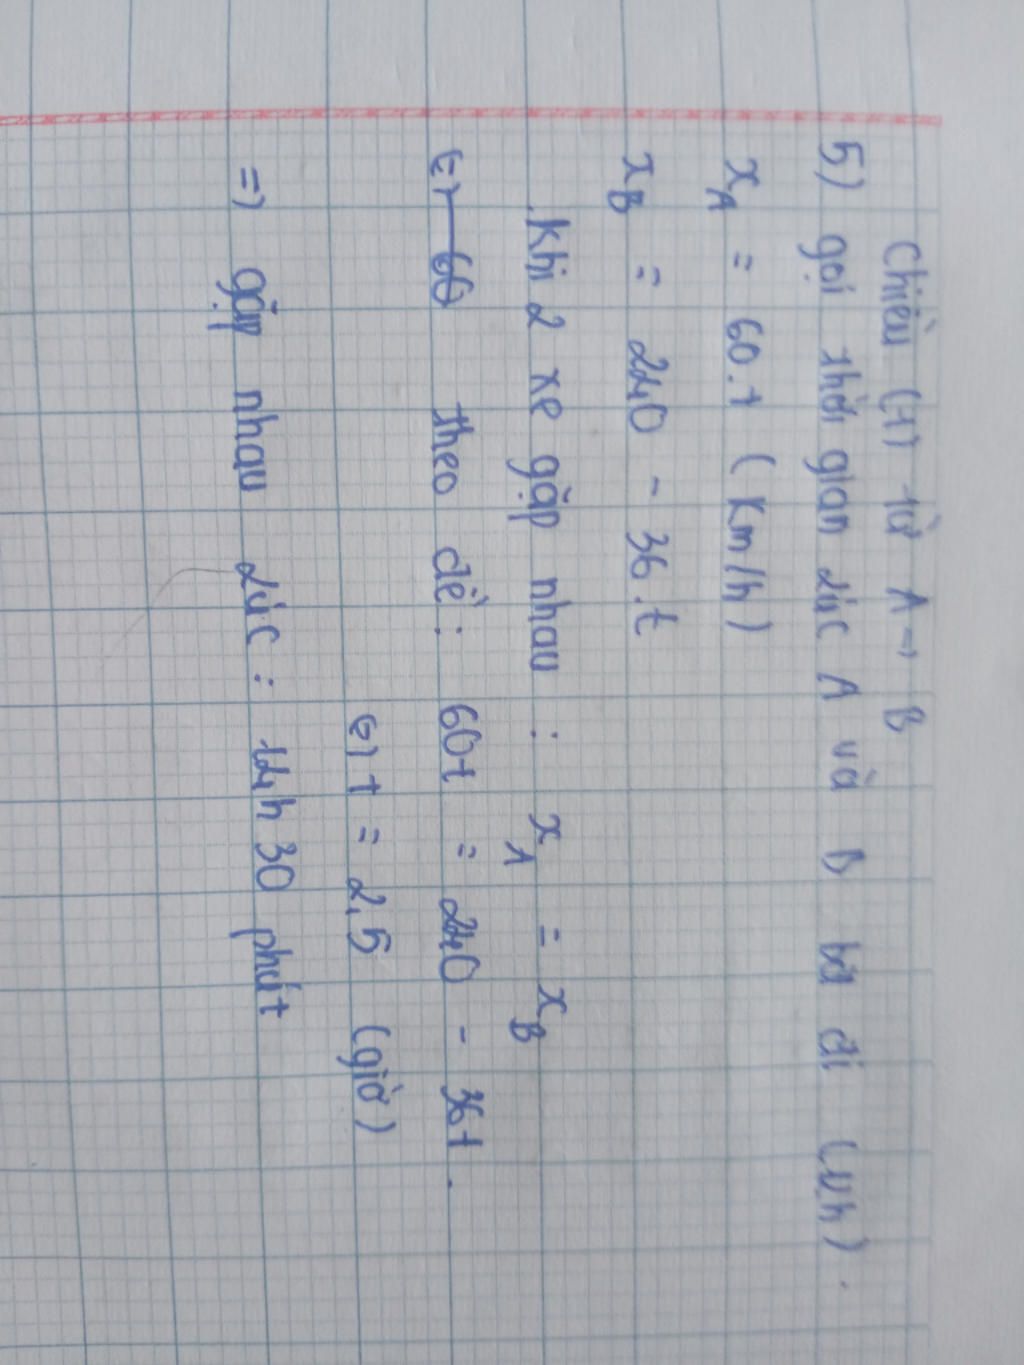 Chiều (+) từ A → B
5) gọi thời gian lúc A và B bđ đi (4h).
xA = 60.t (Km/h)
xB = 240 - 36.t
Khi 2 xe gặp nhau : xA = xB
theo đề : 60t = 240 - 36t.
(=) t = 2,5 (giờ)
=) gặp nhau lúc : 14h 30 phút